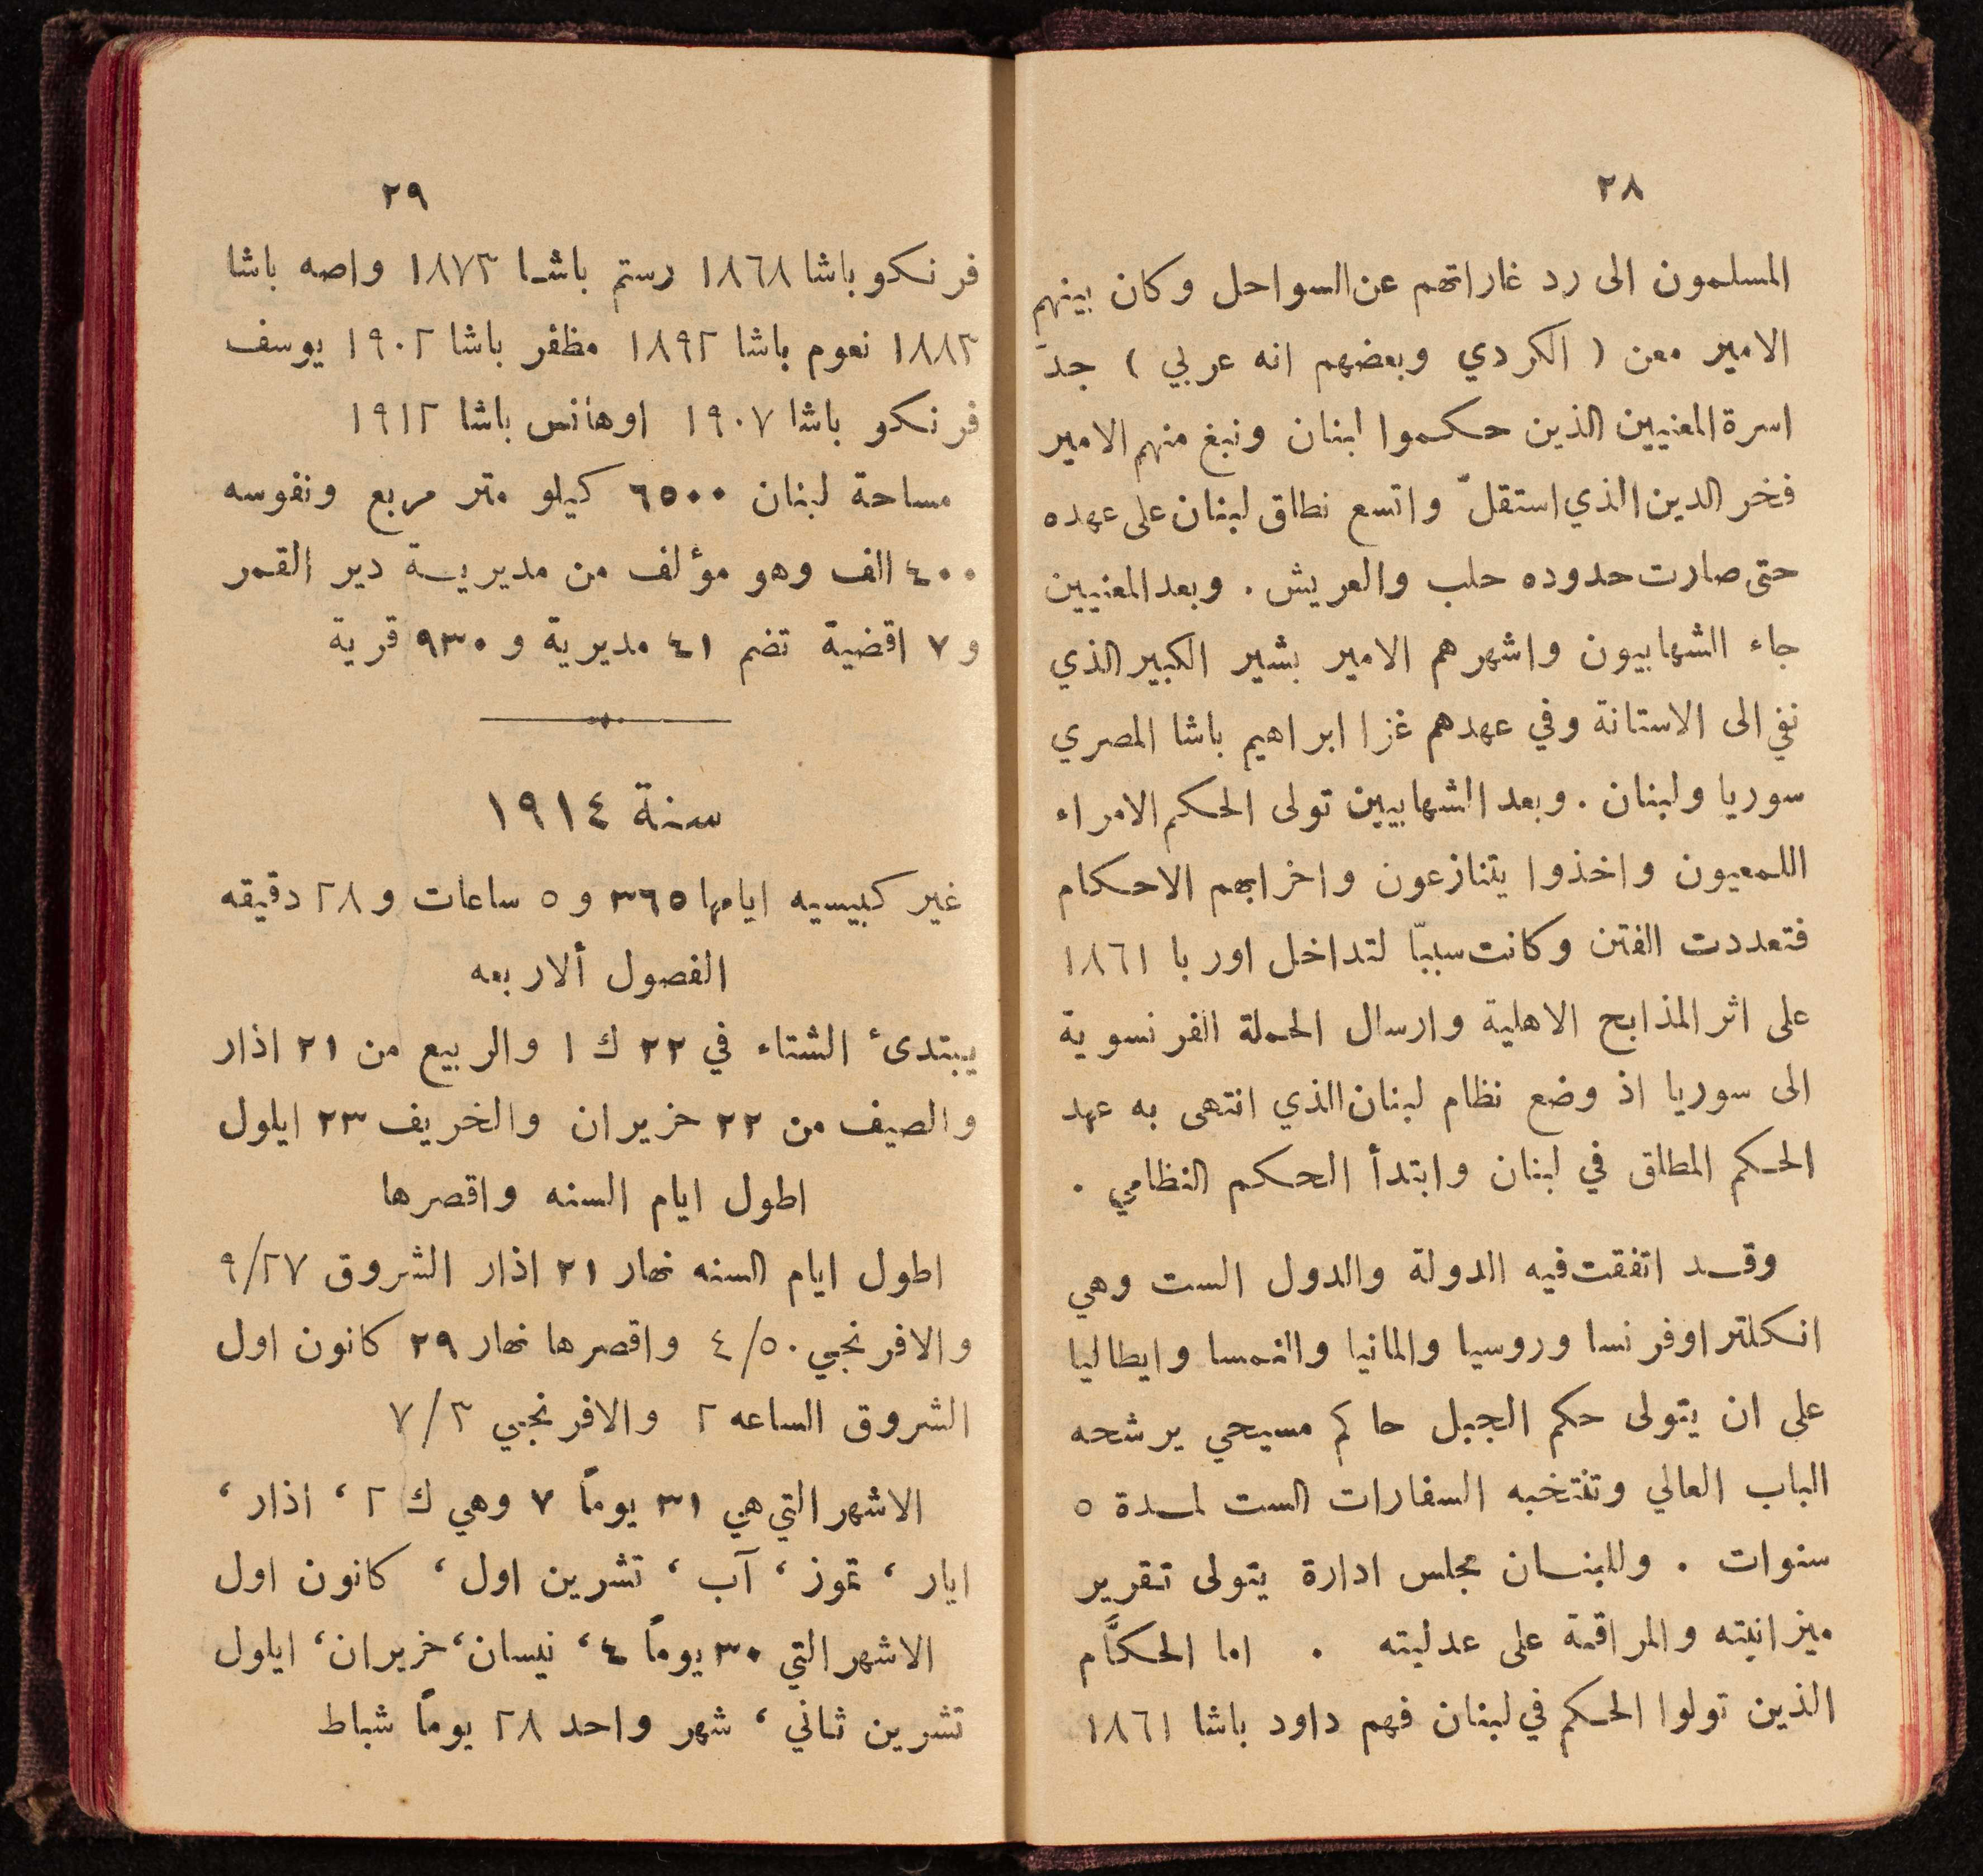 ٢٨
المسلمون الى رد غاراتهم عن السواحل وكان بينهم
الامير معن ( الكردي وبعضهم انه عربي ) جدّ
اسرة المعنيين الذين حكموا لبنان ونبغ منهم الامير
فخر الدين الذي استقلّ واتسع نطاق لبنان على عهده
حتى صارت حدوده حلب والعريش . وبعد المعنيين
جاء الشهابيون واشهرهم الامير بشير الكبير الذي
نفي الى الاستانة وفي عهدهم غزا ابراهيم باشا المصري
سوريا ولبنان . وبعد الشهابيين تولى الحكم الامراء
اللمعيون واخذوا يتنازعون واخرابهم الاحكام
فتعددت الفتن وكانت سببًا لتداخل اوربا ١٨٦١
على اثر المذابح الاهلية وارسال الحملة الفرنسوية
الى سوريا اذ وضع نظام لبنان الذي انتهى به عهد
الحكم المطلق في لبنان وابتدأ الحكم النظامي .
وقد اتفقت فيه الدولة والدول الست وهي
انكلترا وفرنسا وروسيا والمانيا والنمسا وايطاليا
على ان يتولى حكم الجبل حاكم مسيحي يرشحه
الباب العالي وتنتخبه السفارات الست لمدة ٥
سنوات . وللبنان مجلس ادارة يتولى تقرير
ميزانيته والمراقبة على عدليته . اما الحكَّام
الذين تولوا الحكم في لبنان فهم داود باشا ١٨٦١
٢٩
فرنكو باشا ١٨٦٨ رستم باشا ١٨٧٣ واصه باشا
١٨٨٣ نعوم باشا ١٨٩٢ مظفر باشا ١٩٠٢ يوسف
فرنكو باشا ١٩٠٧ اوهانس باشا ١٩١٢
مساحة لبنان ٦٥٠٠ كيلو متر مربع ونفوسه
٤٠٠ الف وهو مؤلف من مديرية دير القمر
و ٧ اقضية تضم ٤١ مديرية و ٩٣٠ قرية
سنة ١٩١٤
غير كبيسيه ايامها ٣٦٥ و ٥ ساعات و ٢٨ دقيقه
الفصول ألاربعه
يبتدئ الشتاء في ٢٢ ك ١ والربيع من ٢١ اذار
والصيف من ٢٢ حزيران والخريف ٢٣ ايلول
اطول ايام السنه واقصرها
اطول ايام السنه نهار ٢١ اذار الشروق ٩/٢٧
والافرنجي ٤/٥٠ واقصرها نهار ٢٩ كانون اول
الشروق الساعه ٢ والافرنجي ٧/٣
الاشهر التي هي ٣١ يوماً ٧ وهي ك ٢ ، اذار ،
ايار ، تموز ، آب ، تشرين اول ، كانون اول
الاشهر التي ٣٠ يوماً ٤ ، نيسان ، حزيران ، ايلول
تشرين ثاني ، شهر واحد ٢٨ يوماً شباط